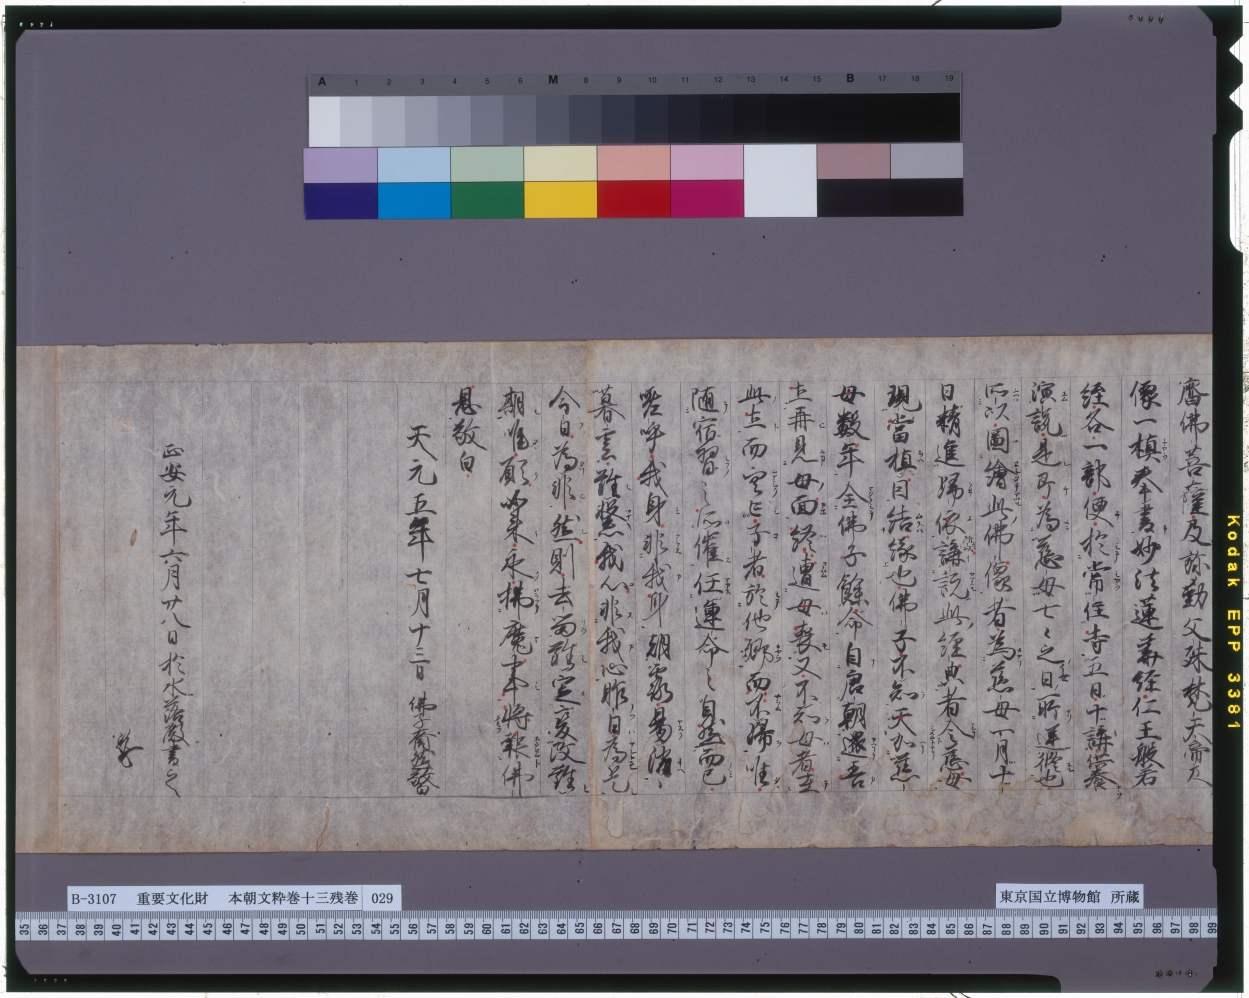 A 1 2 3 4 5 6 M 8 9 10 11 12 13 14 15 B 17 18 19
齋佛菩薩及弥勒父殊梵天帝尺
像一楨奉書妙法蓮華経仁王般若
経各一部便於常住寺五日十講供養
演説是即為慈母七々之日所選修也
所以圖繪此佛像者為慈母一月十
日精進帰依講説此經典者令慈母
現當植因結縁也佛子不知天加慈
母數年全佛子餘命自唐朝還吾
土再見母面終遭母喪又不知母者在
此土而空亡子者於他郷而不帰唯
随宿習之所催任運命之自然而已
嗟呼我身非我身朝露易消
暮雲難繋我心非我心昨日為是
今日為非然則去留難定変改難
期唯願吟来永拂魔来将報佛
恩敬白
天元五年七月十三日 佛子奝然敬白
正安元年六月廿八日於水落殿書之
B-3107 重要文化財 本朝文粋巻十三残巻 029
東京国立博物館 所蔵
35 36 37 38 39 40 41 42 43 44 45 46 47 48 49 50 51 52 53 54 55 56 57 58 59 60 61 62 63 64 65 66 67 68 69 70 71 72 73 74 75 76 77 78 79 80 81 82 83 84 85 86 87 88 89 90 91 92 93 94 95 96 97 98 99
Kodak EPP 3381